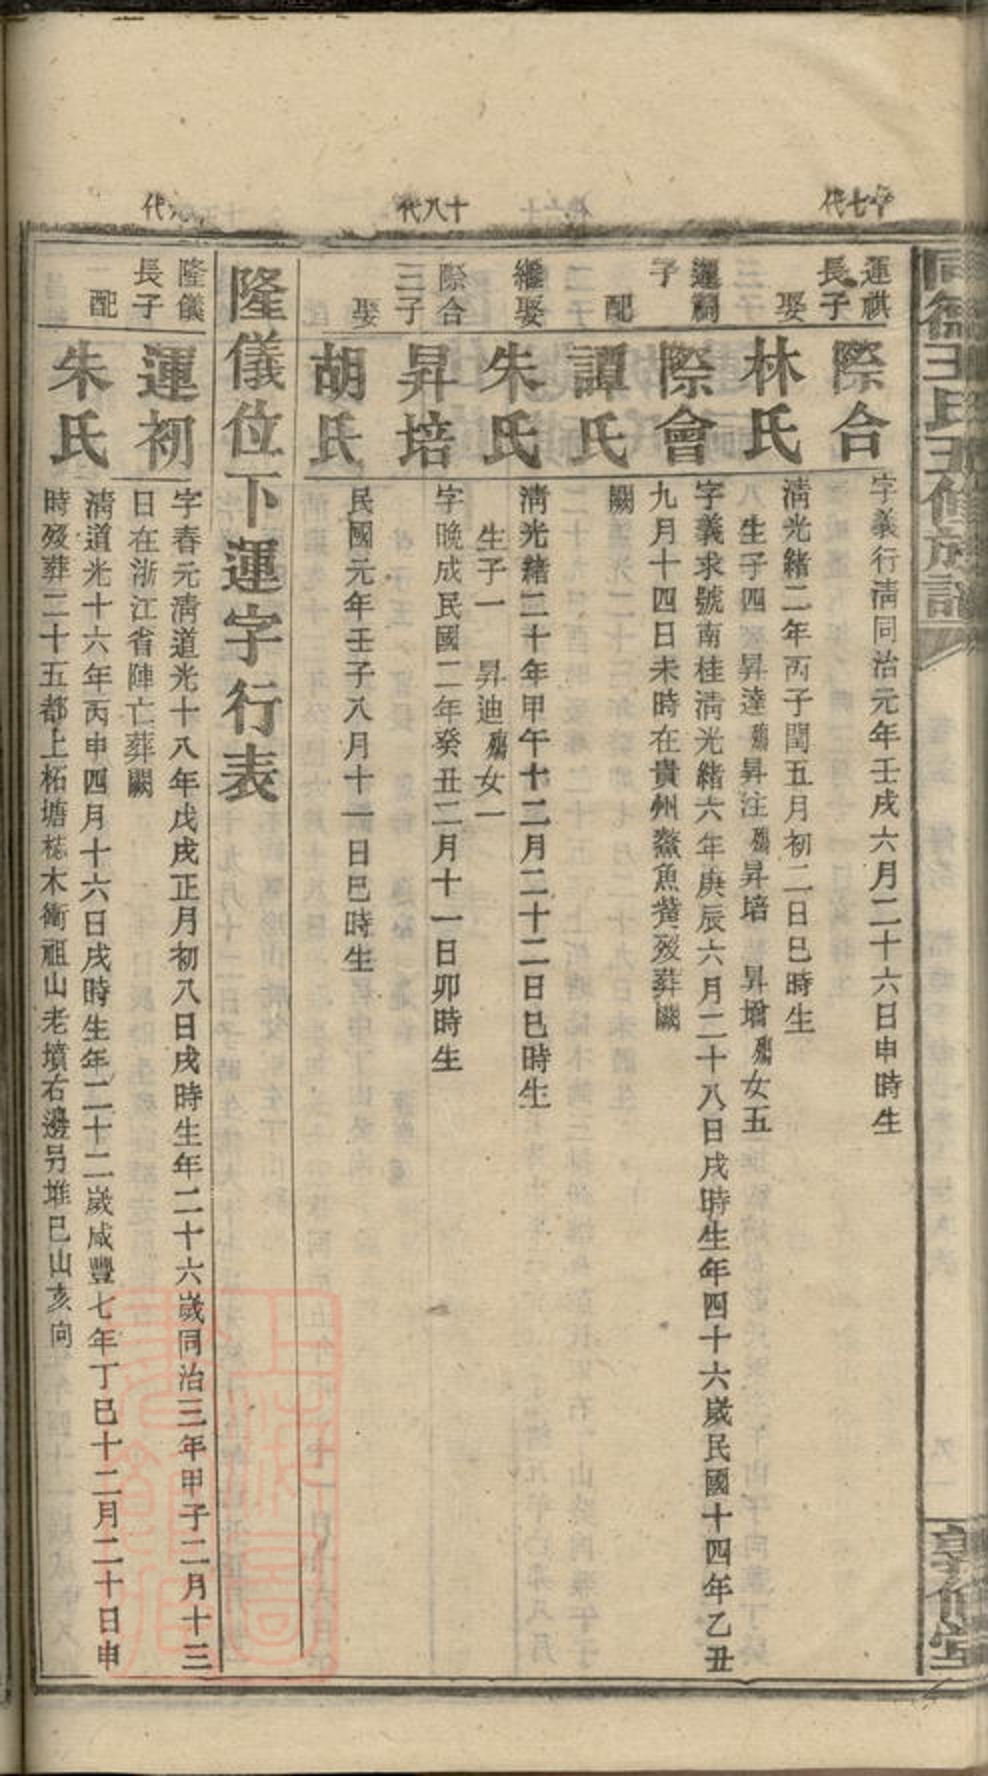 十七代
運祺
長子
際合
字義行清同治元年壬戌六月二十六日申時生
娶
林氏
淸光緒二年丙子閏五月初二日巳時生
生子四 昇達殤 昇注殤 昇培 昇增殤 女五
運嗣
子
際會
字義求號南桂淸光緒六年庚辰六月二十八日戌時生年四十六歲民國十四年乙丑
九月十四日未時在貴州鰲魚
歿葬闕
配
譚氏
闕
繼娶
朱氏
淸光緒二十年甲午十二月二十二日巳時生
生子一 昇迪殤 女一
十八代
際合
三子
昇培
字晚成民國二年癸丑二月十一日卯時生
娶
胡氏
民國元年壬子八月十一日巳時生
隆儀位下運字行表
代
隆儀
長子
運初
字春元淸道光十八年戊戌正月初八日戌時生年二十六歲同治三年甲子二月十三
日在浙江省陣亡葬闕
配
朱氏
淸道光十六年丙申四月十六日戌時生年二十二歲咸豐七年丁巳十二月二十日申
時歿葬二十五都上柘塘梽木衝祖山老墳右邊另堆巳山亥向